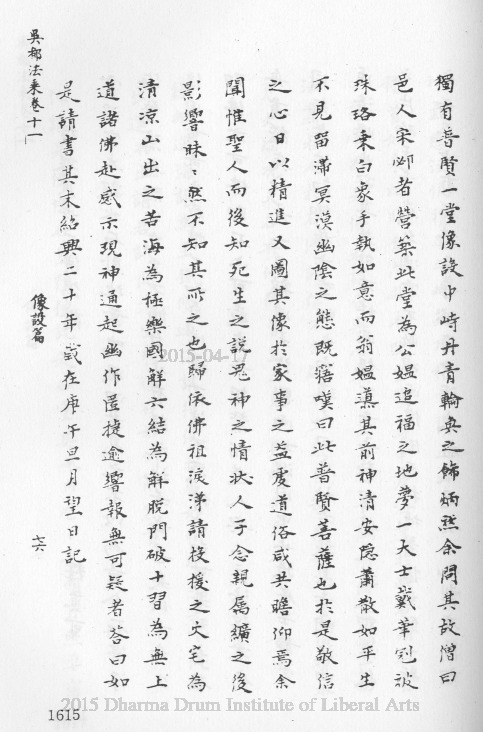 獨有普賢一堂像設中峙丹青輪奐之飾炳然余問其故僧曰
邑人宋邲者營築此堂為公媼追福之地夢一大士戴華冠被
珠珞乘白象手執如意而翁媼導其前神清安隱蕭散如平生
不見留滯冥漠幽陰之態既寤嘆曰此普賢菩薩也於是敬信
之心日以精進又圖其像於家事之益虔道俗咸共瞻仰焉余
聞惟聖人而後知死生之說鬼神之情狀人子念親屬纊之後
影響昧〻然不知其所之也歸依佛祖淚涕請救援之火宅為
清凉山出之苦海為極樂國解六結為解脫門破十習為無上
道諸佛赴感示現神通起幽作匿捷逾響報無可疑者荅曰如
是請書其末紹興二十年歲在庚午旦月望日記
吳都法乘卷十一
像設篇
六
1615
2015-04-17
2015 Dharma Drum Institute of Liberal Arts